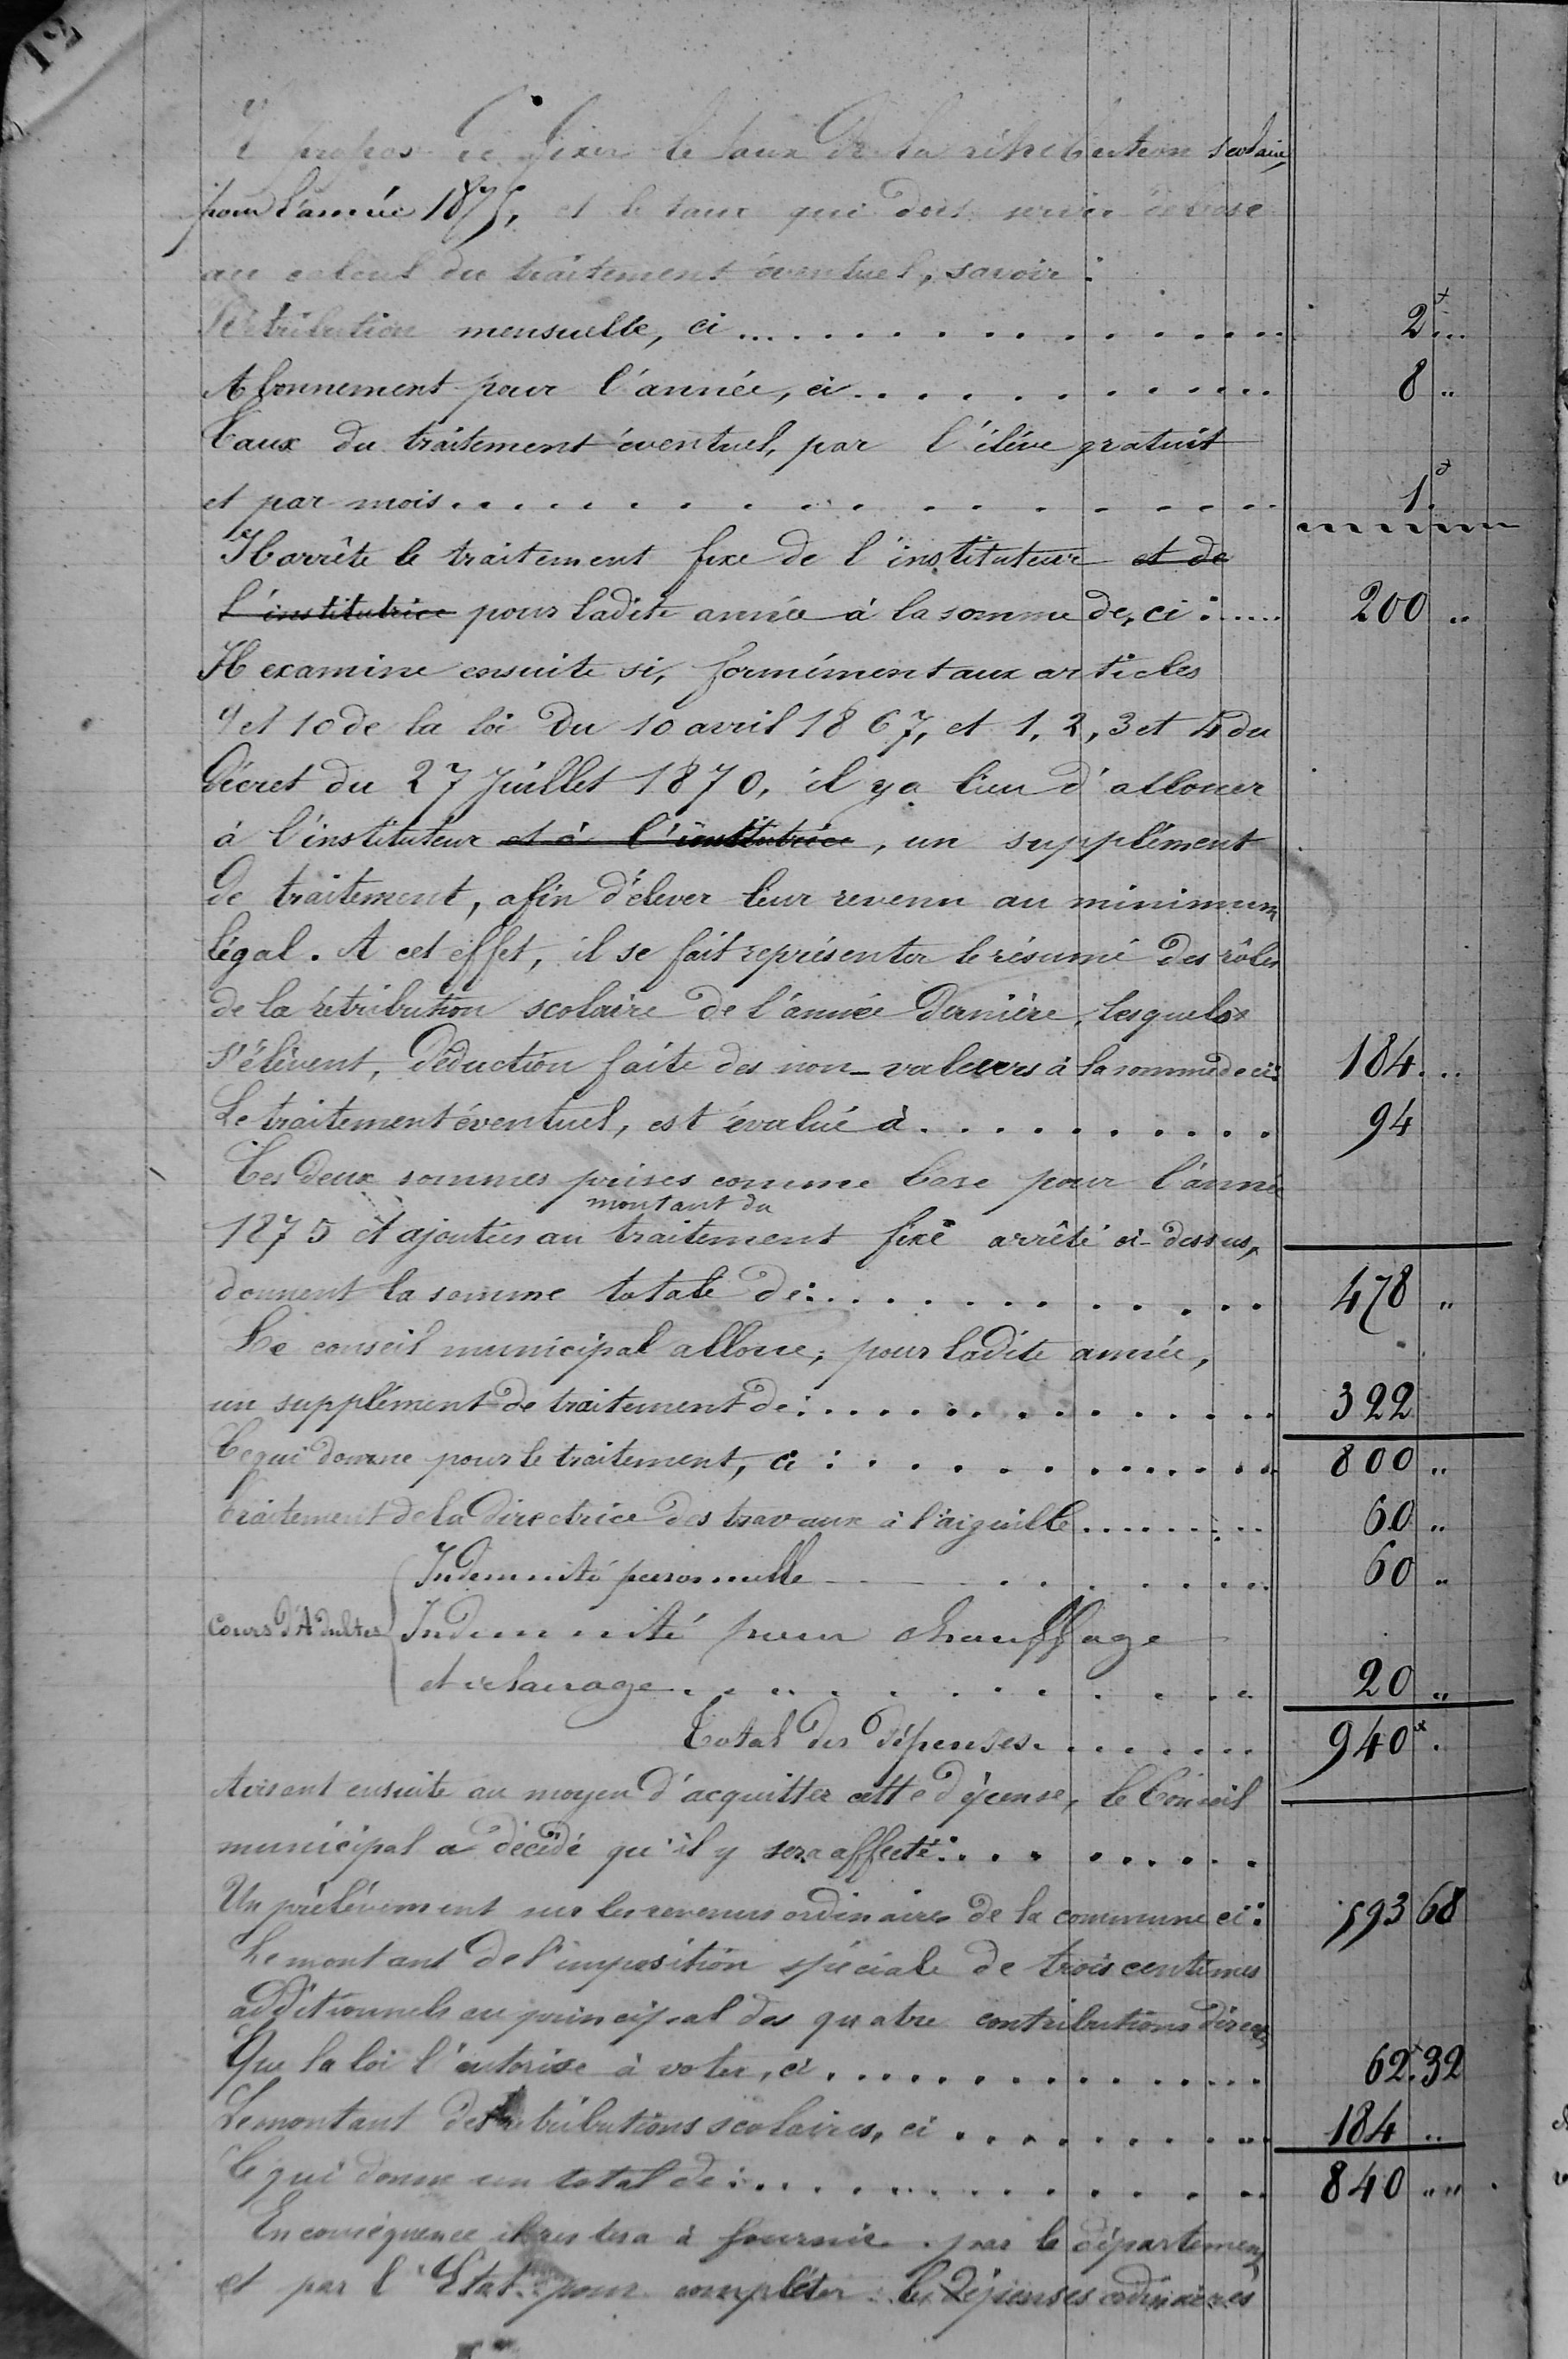 12
Il propose de fixer le taux de la rétribution scolaire,
pour l'année 1875, et le taux qui doit servir de base
au calcul du traitement éventuel, savoir :
Rétribution mensuelle, ci ... 2 f ...
Abonnement pour l'année, ci ... 8 "
Taux du traitement éventuel, par l'élève gratuit
et par mois ... 1 f
Il arrête le traitement fixe de l'instituteur et de
l'institutrice pour ladite année à la somme de, ci : ... 200 "
Il examine ensuite si, formément aux articles
9 et 10 de la loi du 10 avril 1867, et 1, 2, 3 et 4 du
Décret du 27 Juillet 1870, il y a lieu d'allouer
à l'instituteur et à l'institutrice, un supplément
de traitement, afin d'élever leur revenu au minimum
légal. A cet effet, il se fait représenter le résumé des rôles
de la rétribution scolaire de l'année dernière, lesquels
s'élèvent, déduction faite des non-valeurs à la somme de ci : 184 ...
Le traitement éventuel, est évalué à ... 94
Ces deux sommes prises comme base pour l'année
montant du
1875 et ajoutées au traitement fixe arrêté ci-dessus,
donnent la somme totale de : ... 478 "
Le conseil municipal alloue, pour ladite année,
un supplément de traitement de : ... 322
Ce qui donne pour le traitement, ci : ... 800 "
Traitement de la directrice des travaux à l'aiguille ... 60 "
Indemnité personnelle ... 60 "
Cours d'Adultes Indemnité pour chauffage
et éclairage ... 20 "
Total des dépenses ... 940 f
Avisant ensuite au moyen d'acquitter cette dépense, le Conseil
municipal a décidé qu'il y sera affecté : ...
Un prélèvement sur les revenus ordinaires de la commune ci : 593 68
Le montant de l'imposition spéciale de trois centimes
additionnels au principal des quatre contributions directes
Que la loi l'autorise à voter, ci ... 62.32
Le montant des rétributions scolaires, ci ... 184 "
Ce qui donne un total de : ... 840 " "
En conséquence il restera à fournir par le département
et par l'Etat pour compléter les Dépenses ordinaires